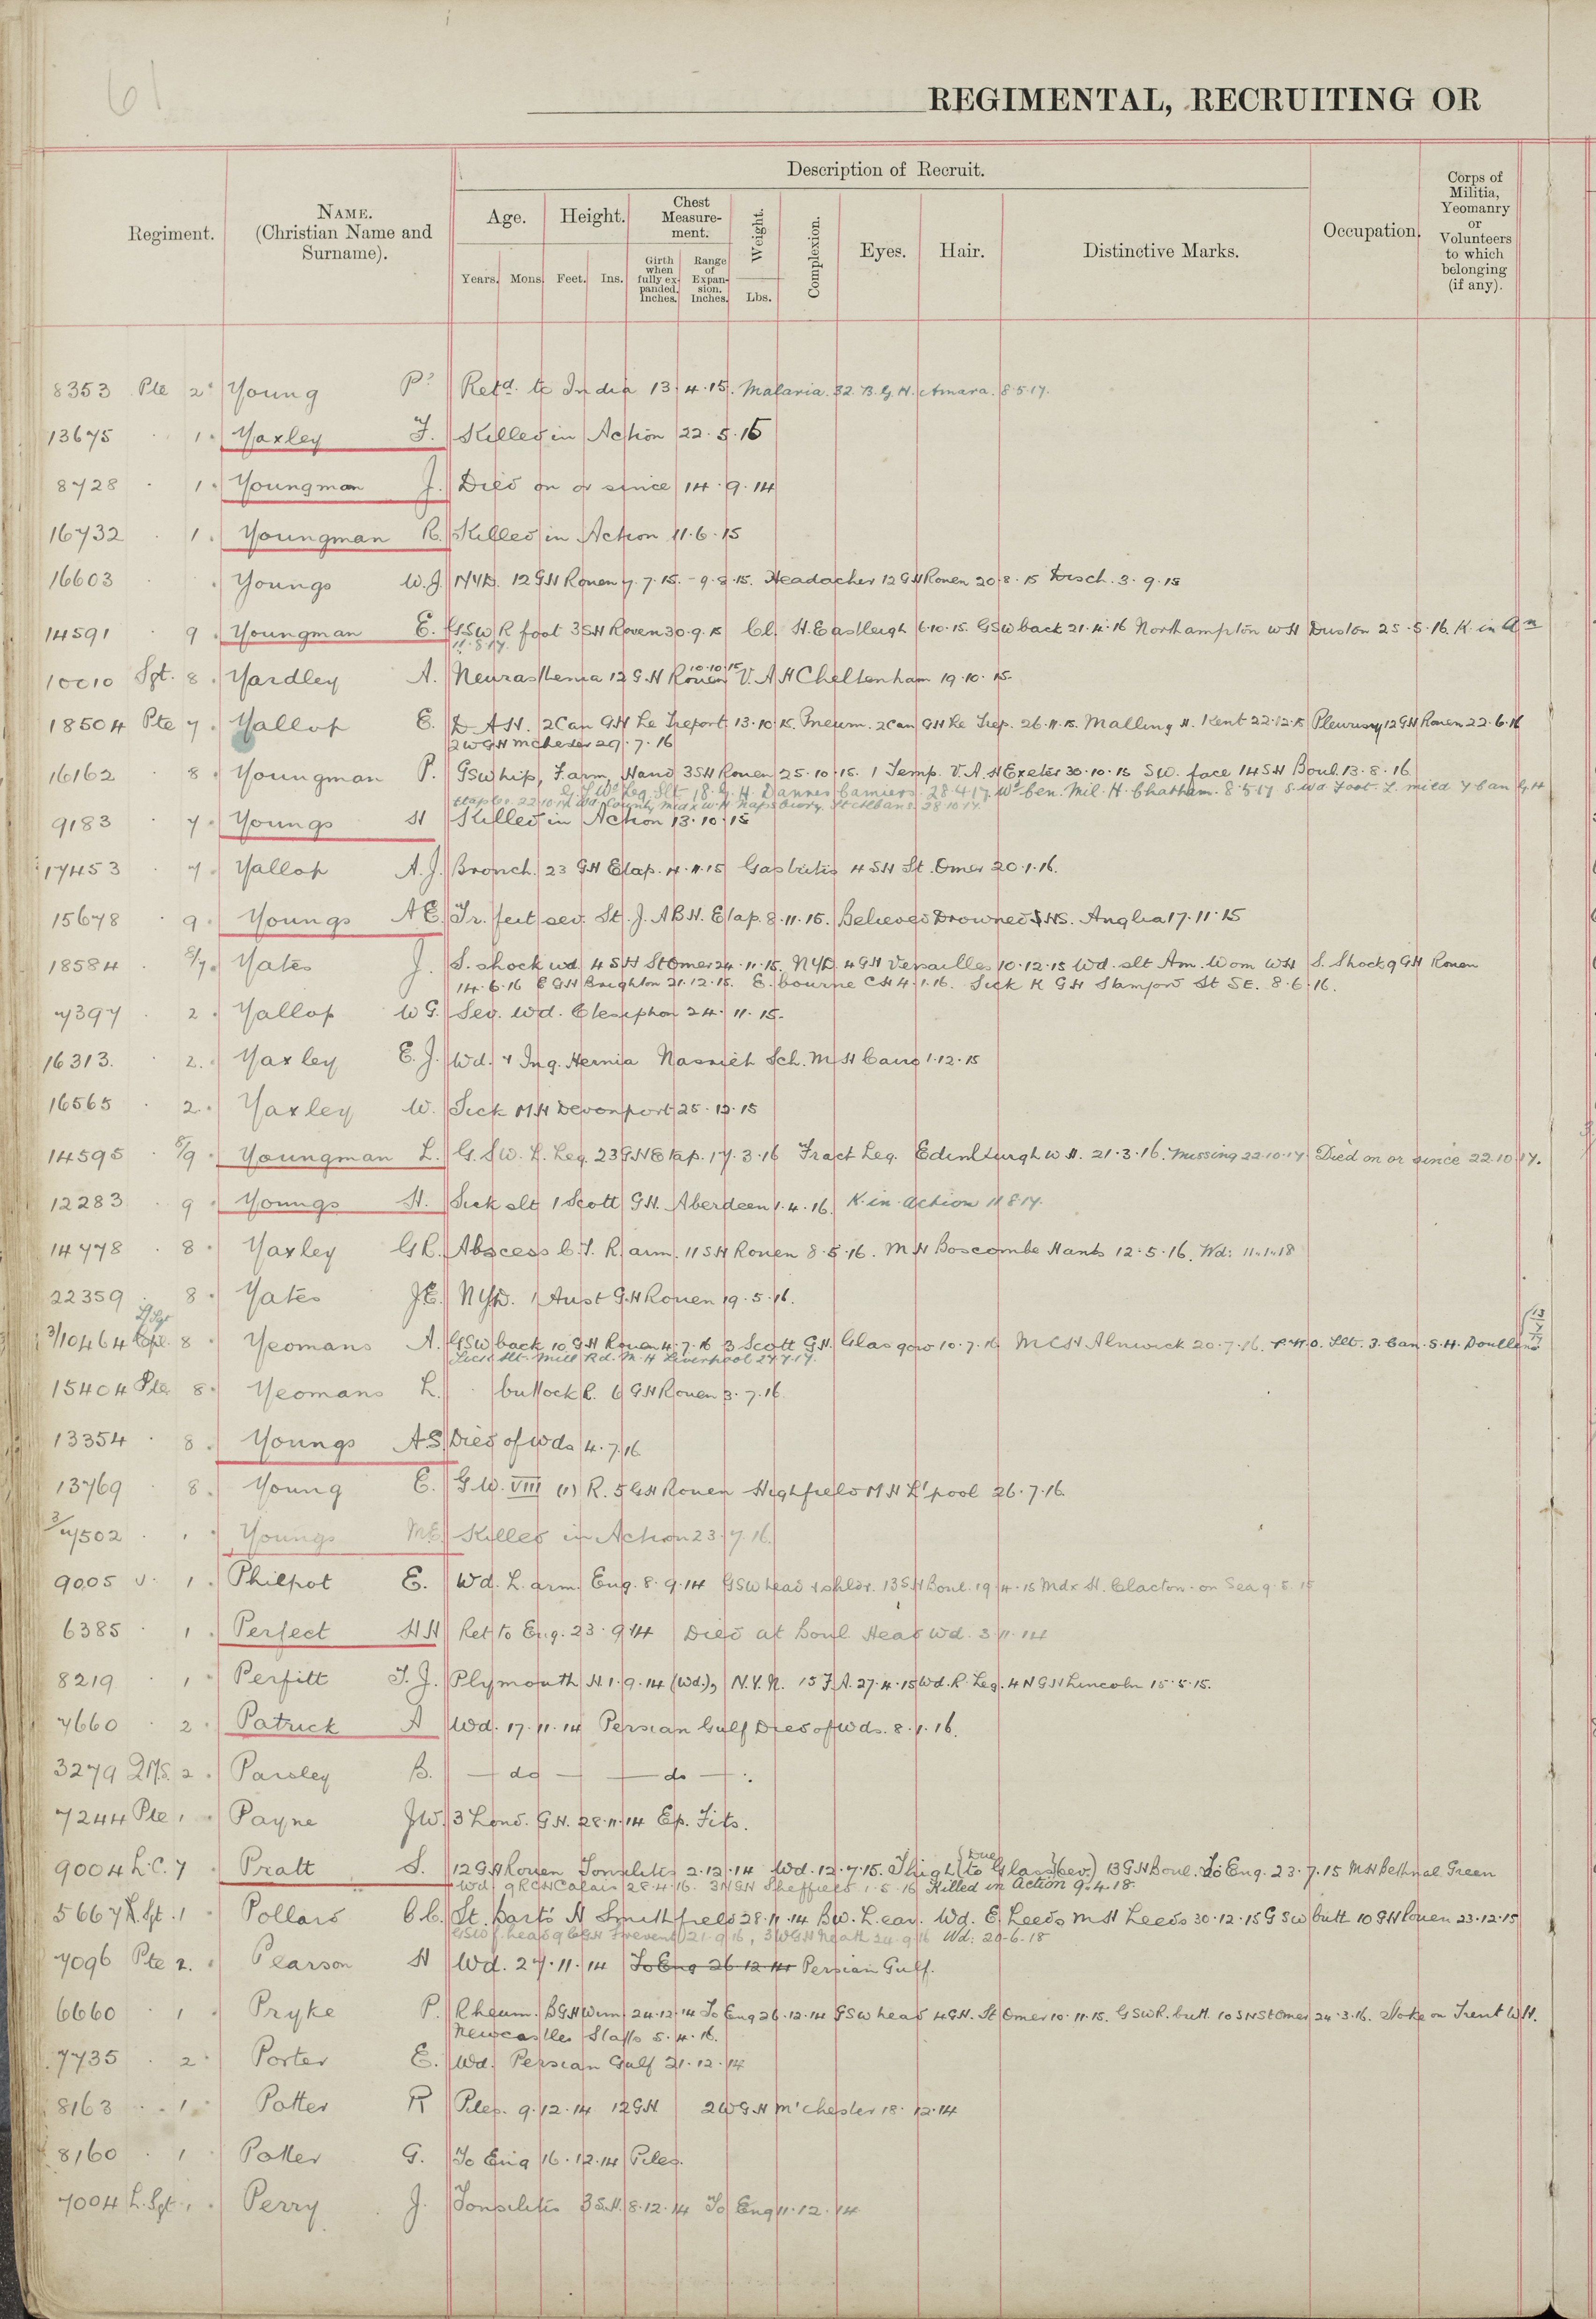 61
REGIMENTAL, RECRUITING OR
Regiment.
NAME.
(Christian Name and
Surname).
Description of Recruit.
Age.
Height.
Chest
Measure-
ment.
Weight.
Complexion.
Eyes.
Hair.
Distinctive Marks.
Occupation.
Corps of
Militia,
Yeomanry
or
Volunteers
to which
belonging
(if any).
Years.
Mons.
Feet.
Ins.
Girth
when
fully ex-
panded.
Inches.
Range
of
Expan-
sion.
Inches.
Lbs.
8353 Pte 2 Young P. Retd. to India 13.4.15. Malaria. 32. B.G.H. Amara. 8.5.17.
13675 1 Yaxley F. Killed in Action 22.5.15
8728 1 Youngman J. Died on or since 14.9.14
16732 1 Youngman R. Killed in Action 11.6.15
16603 Youngs W.J. NYD. 12 GH Rouen 7.7.15. - 9.8.15. Headaches 12 GH Rouen 20.8.15 Disch. 3.9.15
14591 9 Youngman E. GSW R foot 3SH Rouen 30.9.15 Cl. H. Eastleigh 6.10.15. GSW back 21.4.16 Northampton WH Duston 25.5.16. K. in An
11.8.17.
10010 Sgt. 8 Yardley A. Neurasthenia 12 G.H Rouen 10.10.15 V.A H Cheltenham 19.10.15
18504 Pte 7 Yallop E. D.A.H. 2 Can GH Le Treport 13.10.15. Pneum. 2 Can GH Le Trep. 26.11.15. Malling H. Kent 22.12.15 Pleurisy 12 GH Rouen 22.6.16
2 W GH Mchester 29.7.16
16162 8 Youngman P. GSW hip, F.arm, Hand 3SH Rouen 25.10.15. 1 Temp. V.A.H Exeter 30.10.15 SW. face 14 SH Boul. 13.8.16
G.S.W. Leg. Slt. 18. G.H. Dannes Camiers. 28.4.17. Wd Cen. Mil. H. Chatham. 8.5.17 S. Wd Foot. L. mild 7 Can G.H
Etaples. 22.10.17. Wd County Midx W.H Napsbury. St Albans. 28.10.17.
9183 7 Youngs H Killed in Action 13.10.15
17453 7 Yallop A.J. Bronch. 23 GH Etap. 4.11.15 Gastritis 4 SH St. Omer 20.1.16.
15678 9 Youngs A E. Tr. feet sev. St. J. A B H. Etap. 8.11.15. Believed Drowned HS. Anglia 17.11.15
18584 8/7 Yates J. S. shock wd 4 SH St Omer 24.11.15. NYD. 4 GH Versailles 10.12.15 Wd. slt Am. Wom WH S. Shock 9 GH Rouen
14.6.16 E GH Brighton 21.12.15. E.bourne CH 4.1.16. Sick K GH Stamford St SE. 8.6.16.
7397 2 Yallop W G. Sev. wd. Ctesiphon 24.11.15.
16313. 2. Yaxley E.J. Wd. & Ing. Hernia Nasrieh Sch. M H Cairo 1.12.15
16565 2 Yaxley W. Sick MH Devonport 25.12.15
14595 8/9 Youngman L. G.SW. L. Leg. 23 GH Etap. 17.3.16 Fract Leg. Edinburgh W H. 21.3.16. Missing 22.10.17 Died on or since 22.10.17.
12283 9 Youngs H. Sick slt 1 Scott GH. Aberdeen 1.4.16. K. in action 11 8 17.
14778 8 Yaxley G R. Abscess C.T. R. arm. 11 SH Rouen 8.5.16. M H Boscombe Hants 12.5.16. Wd: 11.1.18
22359 8 Yates J E. NYD. 1 Aust G.H Rouen 19.5.16.
L/Sgt
3/10464 Cpl. 8 Yeomans A. GSW back 10 GH Rouen 4.7.16 3 Scott G.H. Glasgow 10.7.16 M C H Alnwick 20.7.16. P.U.O. Slt. 3. Can. S.H. Doullens 13/7/17
Sick slt. Mill Rd. M.H Liverpool 27.7.17.
15404 Pte 8 Yeomans L. buttock R. 6 GH Rouen 3.7.16
13354 8 Youngs A S. Died of wds 4.7.16
13769 8 Young E. G.W. VIII (1) R. 5 GH Rouen Highfield M H L'pool 26.7.16.
3/7502 Youngs M E. Killed in Action 23.7.16.
9005 1 Philpot E. Wd. L. arm. Eng. 8.9.14 GSW head & shldr. 13SH Boul. 19.4.15 Mdx H. Clacton-on Sea 9.5.15
6385 1 Perfect H H Ret to Eng. 23.9.14 Died at Boul. Head Wd. 3.11.14
8219 1 Perfitt T.J. Plymouth H. 1.9.14 (Wd.), N.Y.N. 15 F.A. 27.4.15 Wd. R. Leg. 4 N G H Lincoln 15.5.15.
7660 2 Patrick A Wd. 17.11.14 Persian Gulf Died of wds. 8.1.16.
3279 QMS 2 Parsley B. — do — — do —
7244 Pte 1 Payne J W. 3 Lond. G.H. 28.11.14 Ep. Fits.
9004 L.C. 7 Pratt S. 12 GH Rouen Tonsilitis 2.12.14 Wd. 12.7.15. Thigh (Due to Glass) (sev.) 13 GH Boul. To Eng. 23.7.15 MH Bethnal Green
Wd. 9 RCH Calais 28.4.16. 3 N GH Sheffield 1.5.16 Killed in action 9.4.18.
5667 L.Sgt. 1 Pollard C C. St. Barts H Smithfield 28.11.14 BW. L. ear. Wd. E Leeds MH Leeds 30.12.15 G SW butt 10 GH Rouen 23.12.15
21.9.16, 3 W GH Neath 24.9.16 Wd: 20.6.18
7096 Pte 2. Pearson H Wd. 27.11.14 To Eng 26.12.14 Persian Gulf.
6660 1 Pryke P. Rheum. B GH Wim. 24.12.14 To Eng 26.12.14 GSW head 4 GH. St Omer 10.11.15. G SW R. butt. 10 SH St Omer 24.3.16. Stoke on Trent W H.
Newcastle Staffs 5.4.16.
7735 2 Porter E. Wd. Persian Gulf 21.12.14
8163 1 Potter R Piles. 9.12.14 12 GH 2 W G H M'chester 18.12.14
8160 1 Potter G. To Eng 16.12.14 Piles.
7004 L.Sgt. 1 Perry J. Tonsilitis 3 S.H. 8.12.14 To Eng 11.12.14